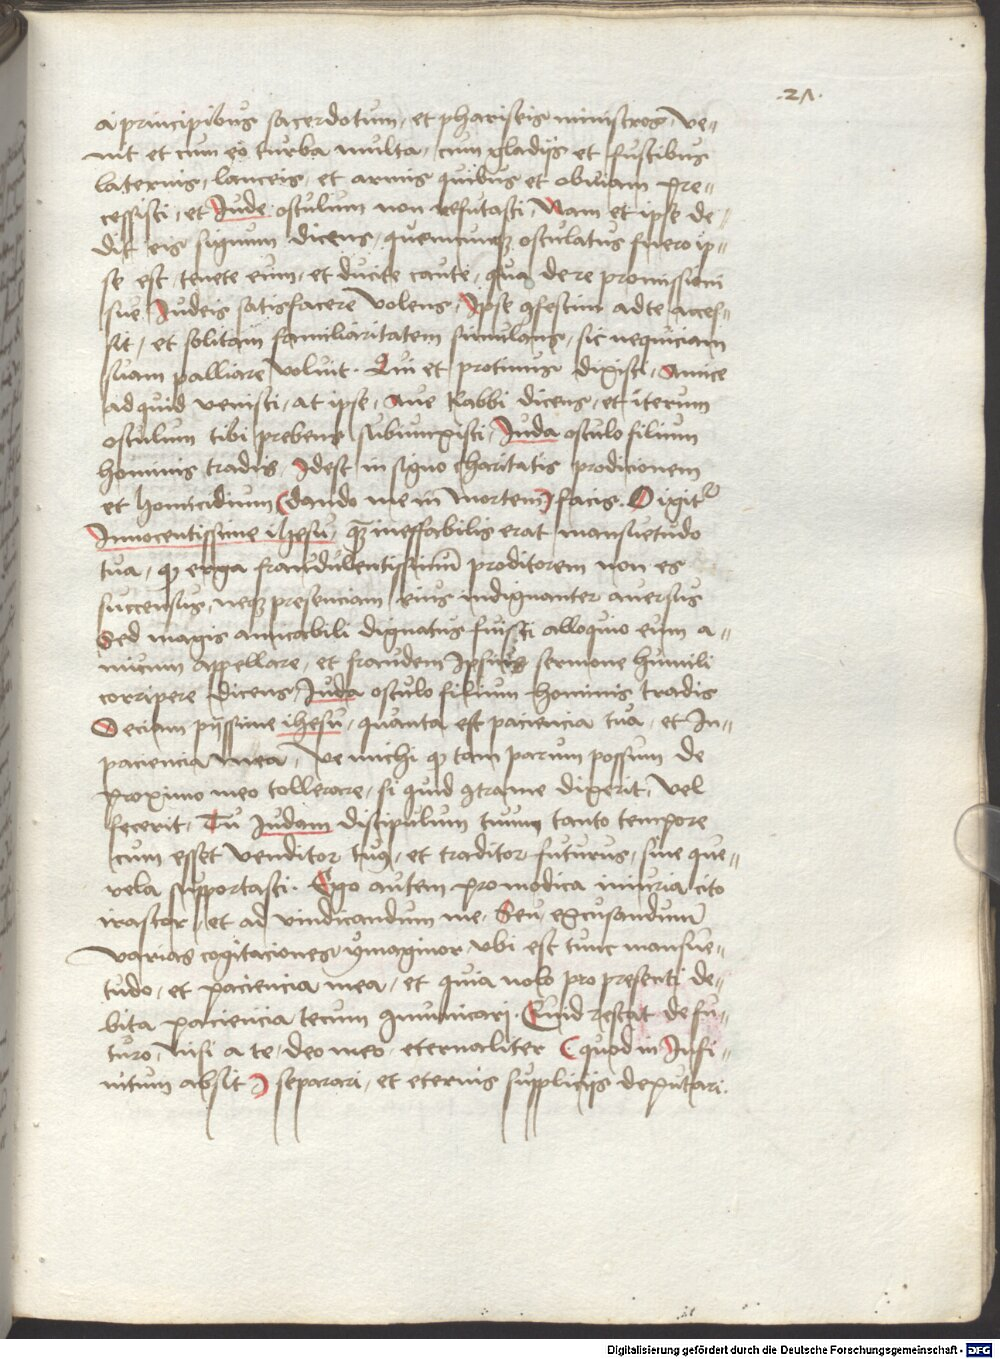 .21.
a principibus sacerdotum, et phariseis ministros ve-
nit et cum eo turba multa, cum gladijs et fustibus
laternis, lanceis, et armis quibus et obuiam pre-
cessisti, et Iude osculum non refutasti, Nam et ipse de-
dit eis signum dicens, quemcunqz osculatus fuero ip-
se est, tenete eum, et ducite caute, qua de re promissioni
sue Iudeis satisfacere volens, Ipse 9festim ad te acces-
sit, et solitam familiaritatem simulans, sic nequiciam
suam palliare voluit. Qui et protinus dixisti, Amice
ad quid venisti, at ipse, Aue Rabbi dicens, et iterum
osculum tibi prebens subiunxisti, Iuda osculo filium
hominis tradis, Idest in signo charitatis prodicionem
et homicidium (dando me in mortem) facis. O igitr
Innocentissime ihesu, qz ineffabilis erat mansuetudo
tua, qz erga fraudulentissimū proditorem non es
succensus, neqz presenciam eius indignanter auersus
Sed magis amicabili dignatus fuisti alloquio eum a-
micum appellare, et fraudem Ipsius sermone humili
corripere dicens, Iuda osculo filium hominis tradis
O eciam pijssime ihesu, quanta est paciencia tua, et In-
paciencia mea, ve michi qz tam parum possum de
proximo meo tollerare, si quid 9tra me dixerit, vel
fecerit, Tu Iudam discipulum tuum tanto tempore
cum esset venditor tuus, et traditor futurus, sine que-
rela supportasti. Ego autem pro modica iniuria cito
irascor, et ad vindicandum me, Seu excusandum
varias cogitaciones ymaginor vbi est tunc mansue-
tudo, et paciencia mea, et quia nolo pro presenti de-
bita paciencia tecum 9municarj. Quid restat de fu-
turo, nisi a te, deo meo, eternaliter (quod in Infi-
nitum absit) separari, et eternis supplicijs deputari.
Digitalisierung gefördert durch die Deutsche Forschungsgemeinschaft - DFG